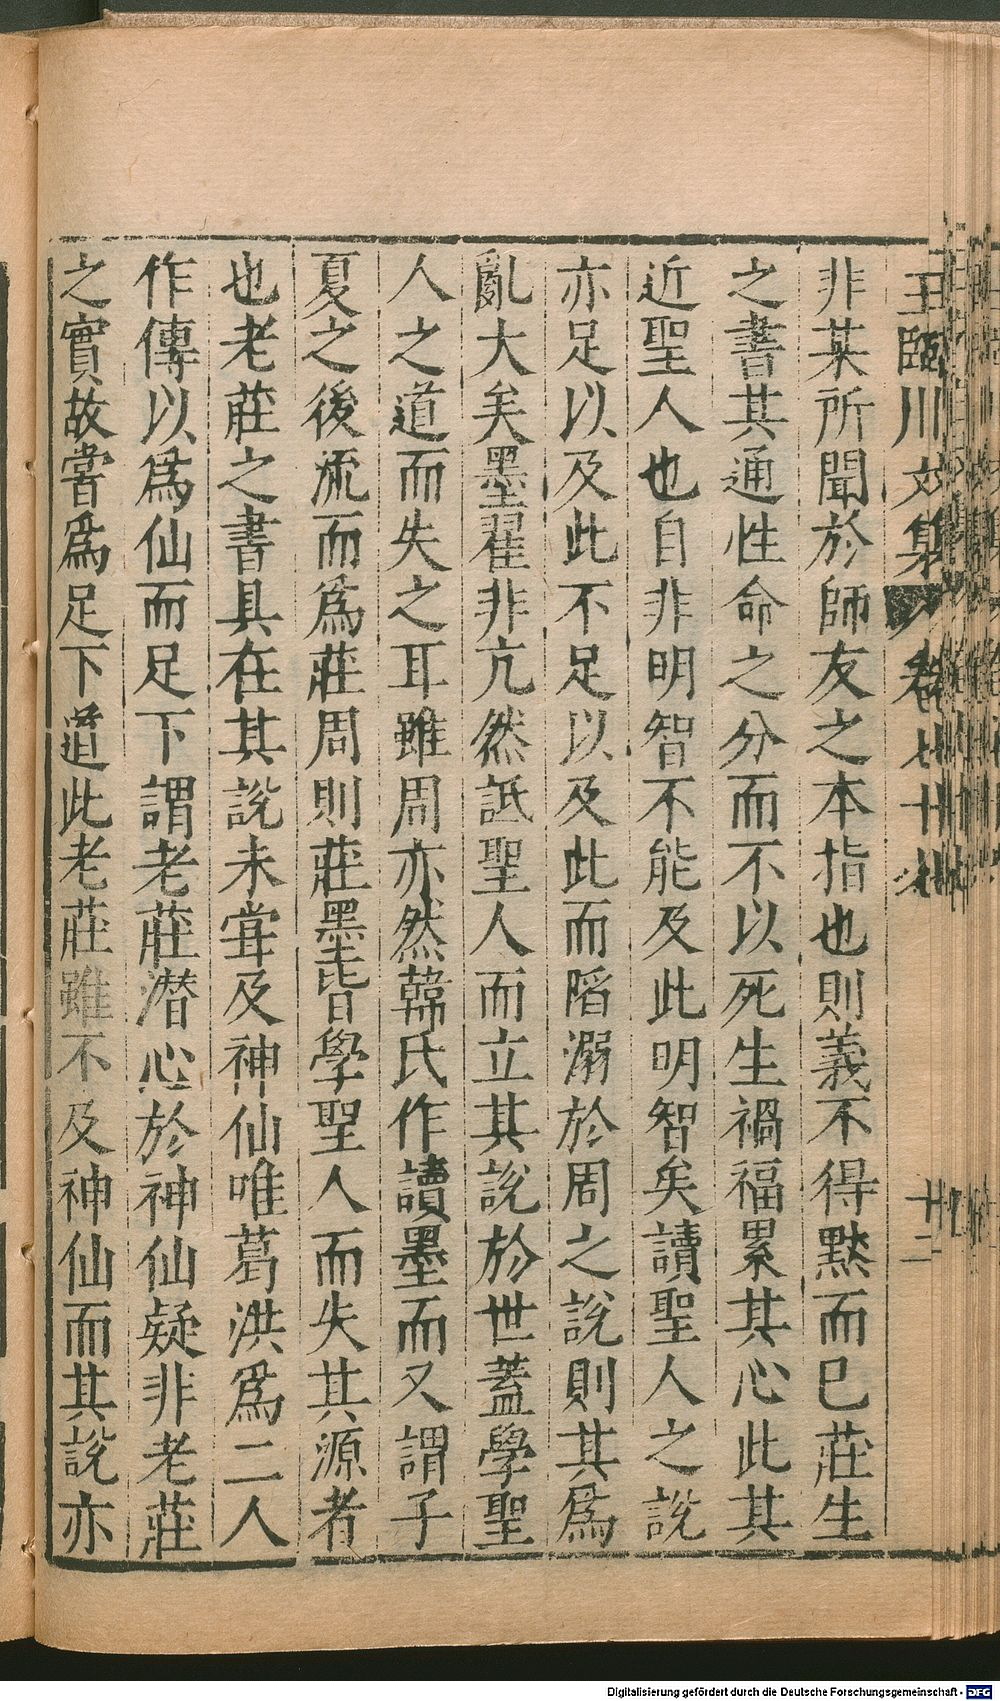 王臨川文集 卷七十七 十二
非某所聞於師友之本指也則義不得黙而已莊生
之書其通性命之分而不以死生禍福累其心此其
近聖人也自非明智不能及此明智矣讀聖人之說
亦足以及此不足以及此而陷溺於周之說則其爲
亂大矣墨翟非亢然詆聖人而立其說於世蓋學聖
人之道而失之耳雖周亦然韓氏作讀墨而又謂子
夏之後流而爲莊周則莊墨皆學聖人而失其源者
也老莊之書具在其說未甞及神仙唯葛洪爲二人
作傳以爲仙而足下謂老莊潜心於神仙疑非老莊
之實故嘗爲足下道此老莊雖不及神仙而其說亦
Digitalisierung gefördert durch die Deutsche Forschungsgemeinschaft - DFG